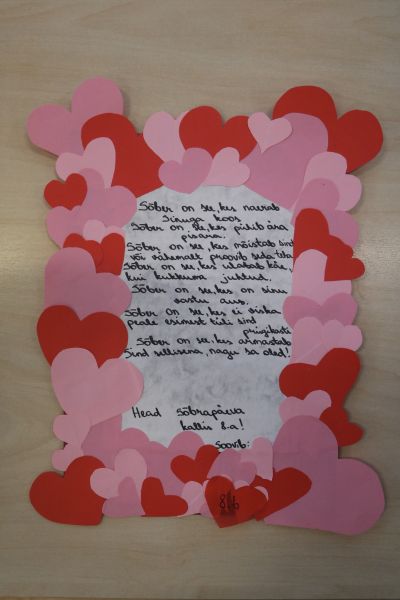 Sõber on see, kes naerab
Sinuga koos.
Sõber on see, kes pühib ära
pisara.
Sõber on see, kes mõistab sind
või vähemalt proovib seda teha.
Sõber on see, kes ulatab käe,
kui kukkuma juhtud.
Sõber on see, kes on sinu
vastu aus.
Sõber on see, kes ei viska
peale esimest tüli sind
prügikasti
Sõber on see, kes armastab
Sind sellisena, nagu sa oled!
Head sõbrapäeva
kallis 8.a!
Soovib:
8.b